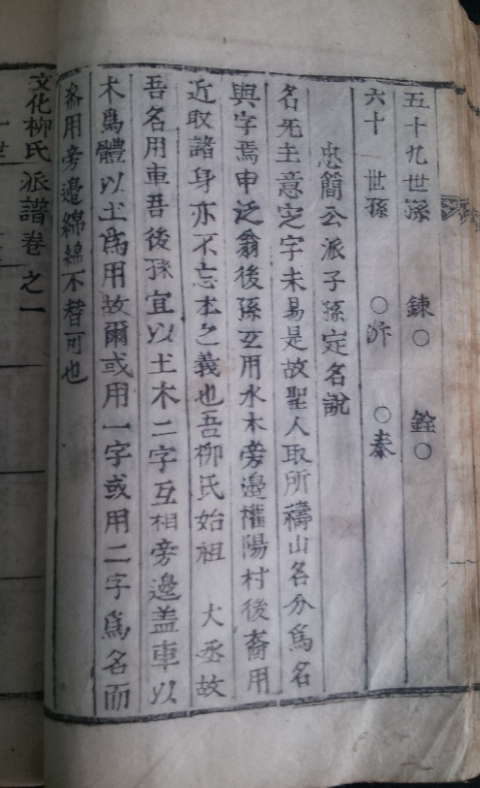 五十九世孫 鍊○ 銓○
六十 世孫 ○泝 ○泰
忠簡公派子孫定名說
名无主意定字未易是故聖人取所禱山名分爲名
與字焉申泛翁後孫互用水木旁邊權陽村後裔用
近取諸身亦不忘本之義也吾柳氏始祖 大丞故
吾名用車吾後孫宜以土木二字互相旁邊盖車以
木爲體以土爲用故爾或用一字或用二字爲名而
用旁邊綿綿不替可也
文化柳氏派譜卷之一